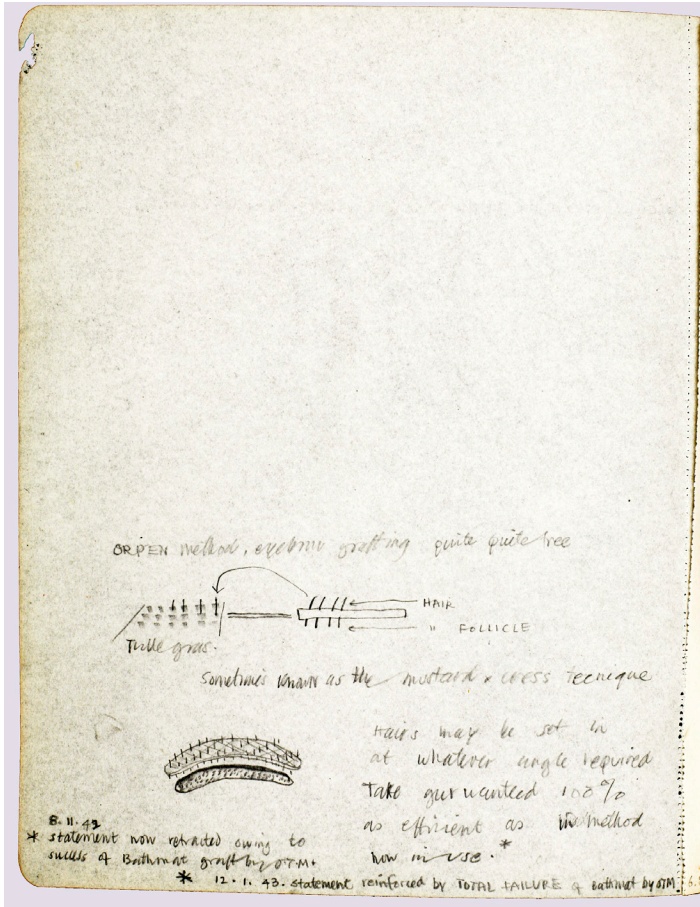 ORPEN method, eyebrow grafting quite quite free
HAIR
" FOLLICLE
Tulle gras.
Sometimes known as the mustard & cress tecnique
Hairs may be set in
at whatever angle required
Take gurwanteed 100%
as efficient as the method
now in use. *
8.11.42
* statement now retracted owing to
success of Bathmat graft by OTM.
* 12.1.43. statement reinforced by TOTAL FAILURE of bathmat by OTM